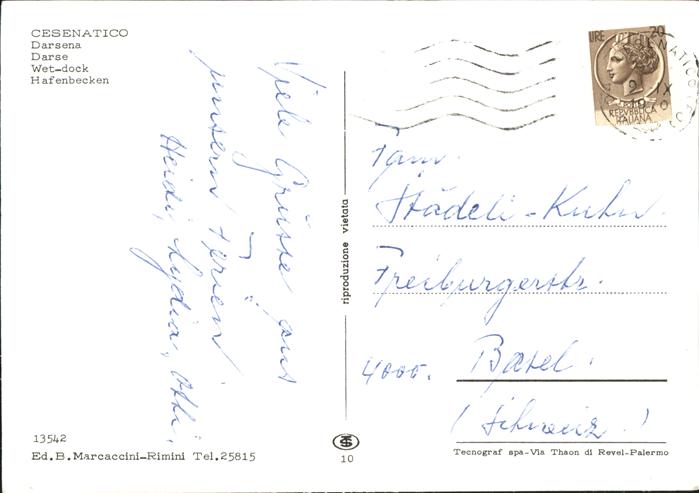 CESENATICO
Darsena
Darse
Wet-dock
Hafenbecken
Viele Grüsse aus
unsern Ferien
Heidi, Lydia, Otti.
riproduzione vietata
LIRE 20
REPVBBLICA
ITALIANA
CESENATICO
Fam.
Städeli-Kuhn.
Freiburgerstr.
4000. Basel.
(Schweiz.)
13542
Ed.B.Marcaccini-Rimini Tel.25815
10
Tecnograf spa-Via Thaon di Revel-Palermo